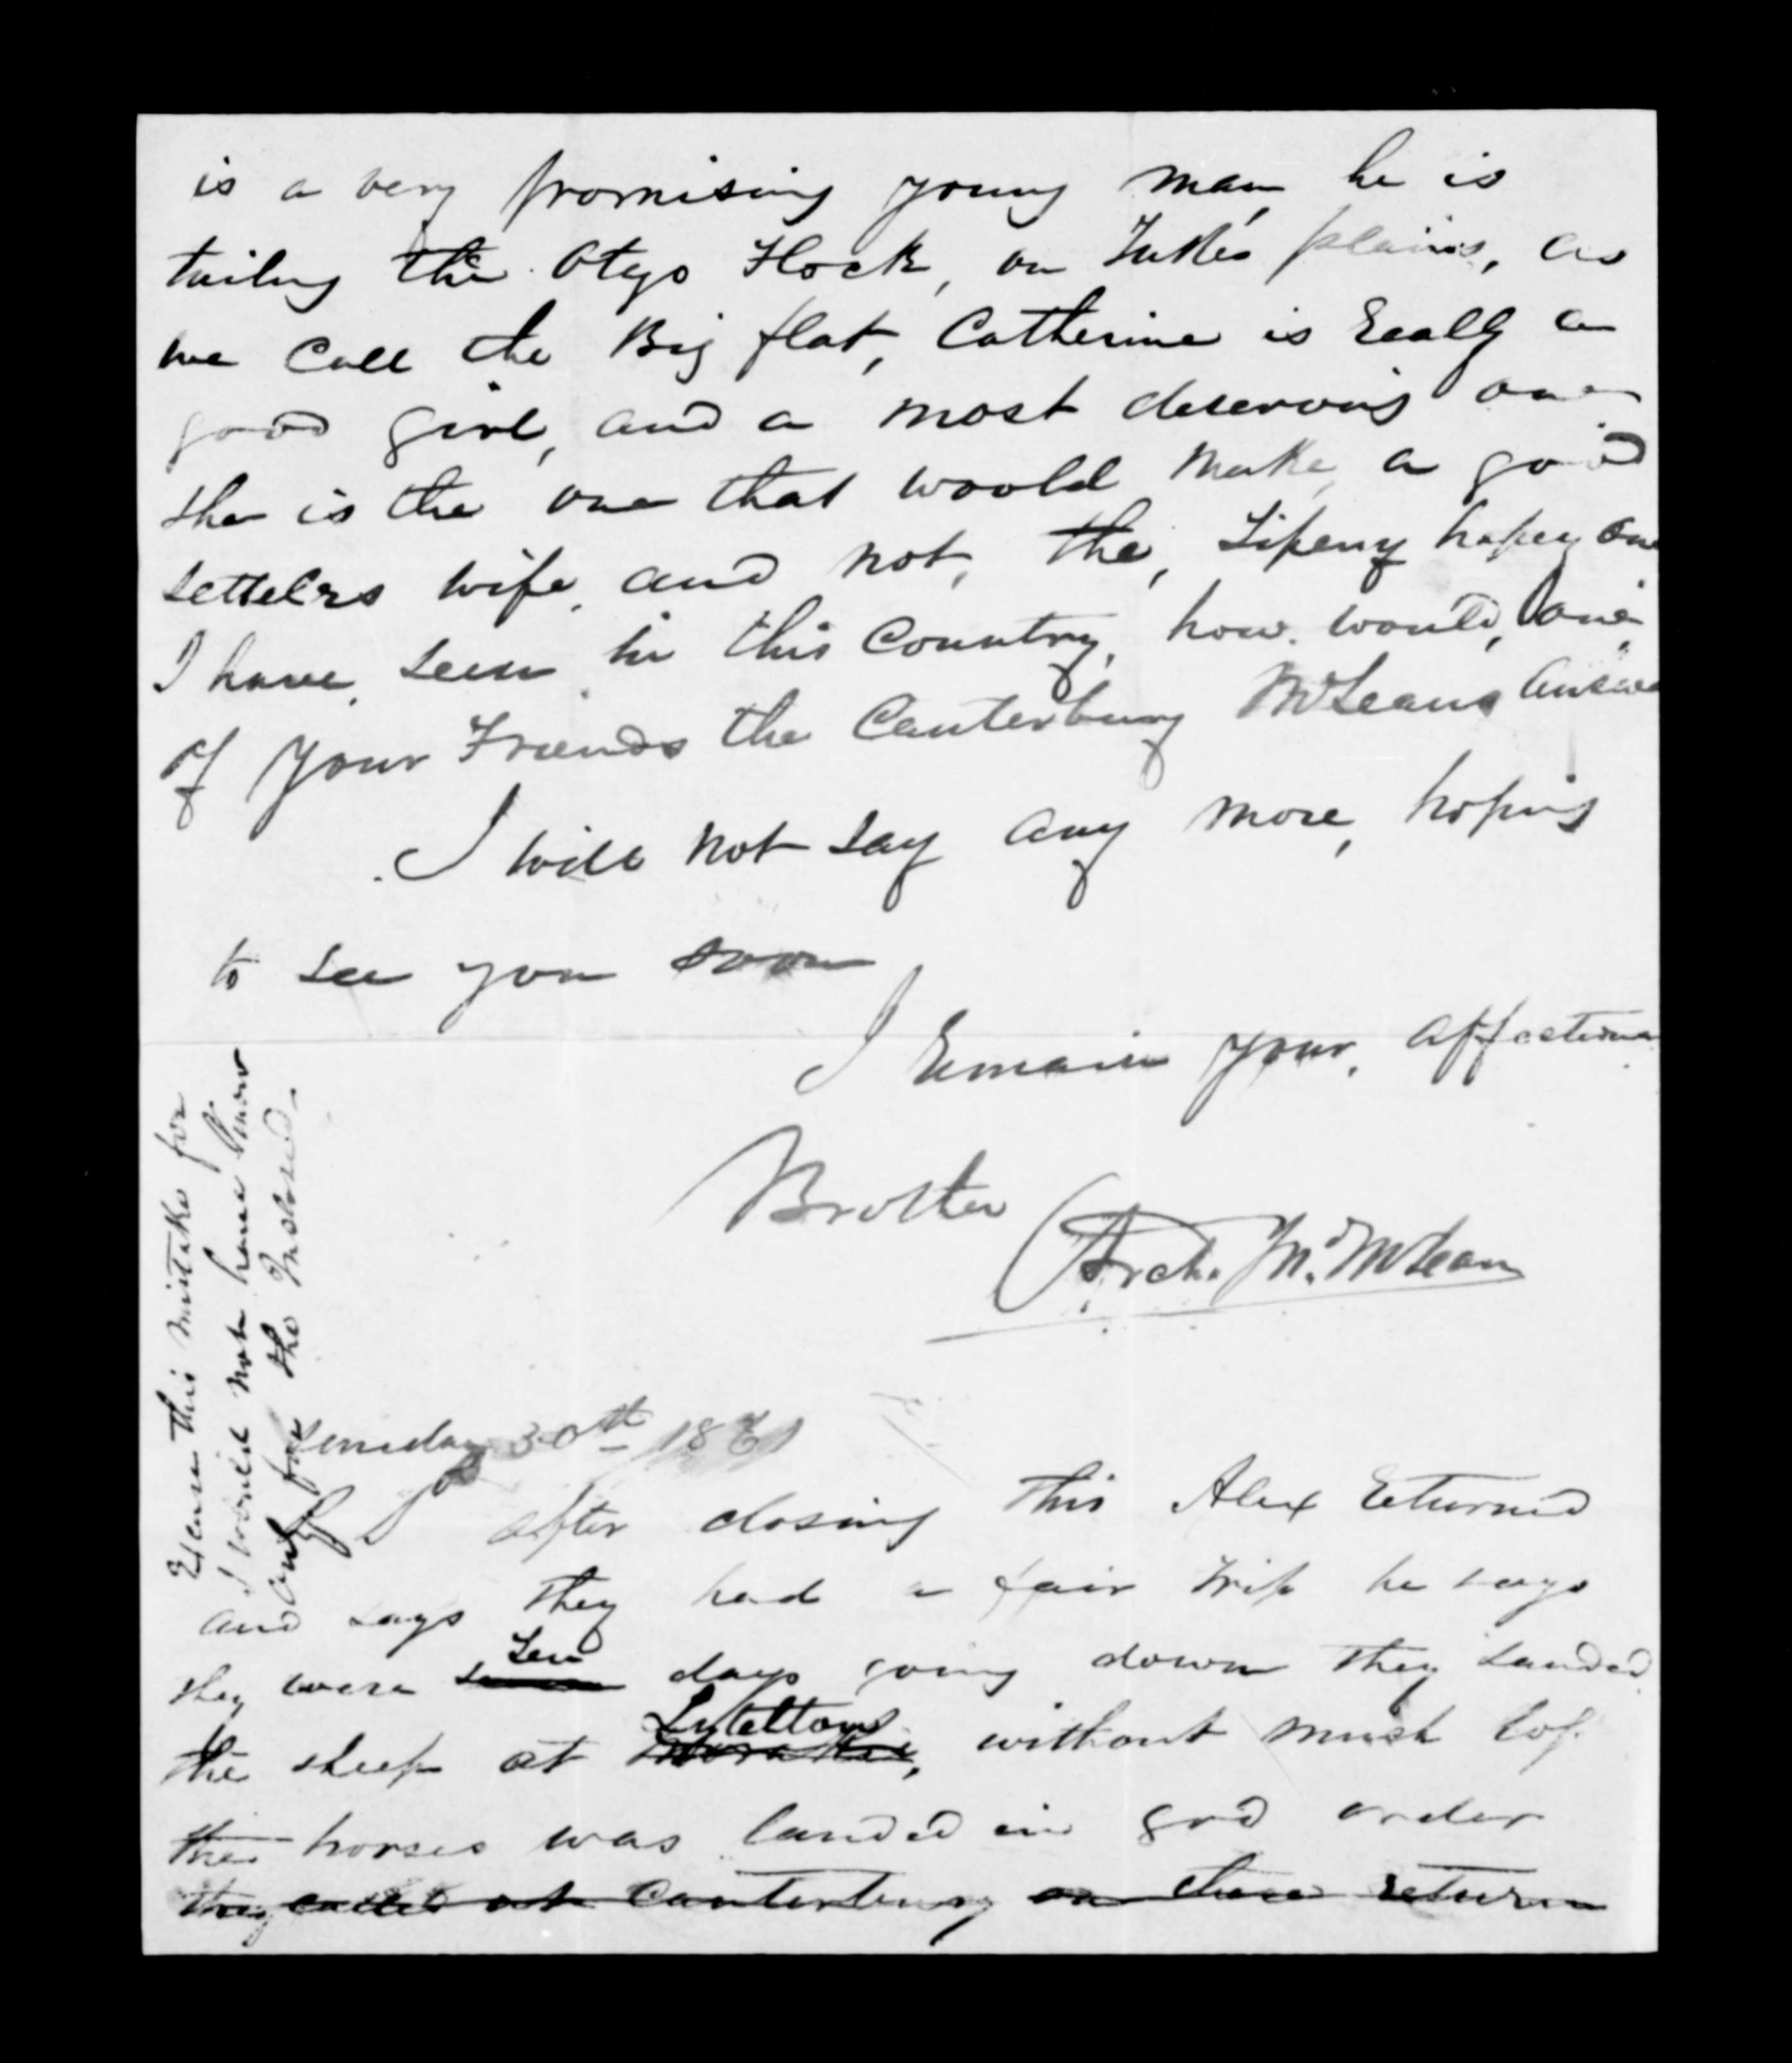 is a very promising young man, he is
tailing the Otago Flock, on plains, as
we Call the Big flat, Catherine is Really a
good girl, and a most deserving one
she is the one that woold make, a good
settelrs wife, and not, the, one
I have, seen in this Country, how would, one,
of Your Friends the Canterbury McLeans answer
I will not say any more, hoping
to see you soon
I Remain your, affectiona
Brother
Arch. McLean
Excuse this mistake for
I would not have known
only for the Inclosed.
30th 1861
PS after closing this Alex Returned
and says they had a fair trip he says
they were ten days going down they landed
the sheep at Lyteltown, without much loss
the horses was landed in god order
they called at Canterbury on there return